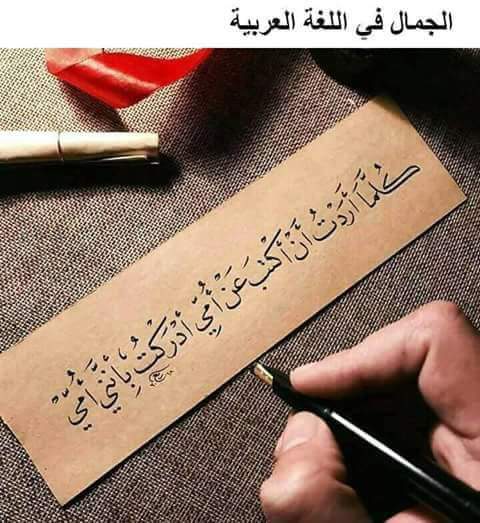 الجمال في اللغة العربية
كُلَّمَا أَرَدْتُ أَنْ أَكْتُبَ عَنْ أُمِّي أَدْرَكْتُ بِأَنَّنِي أُمِّيٌّ